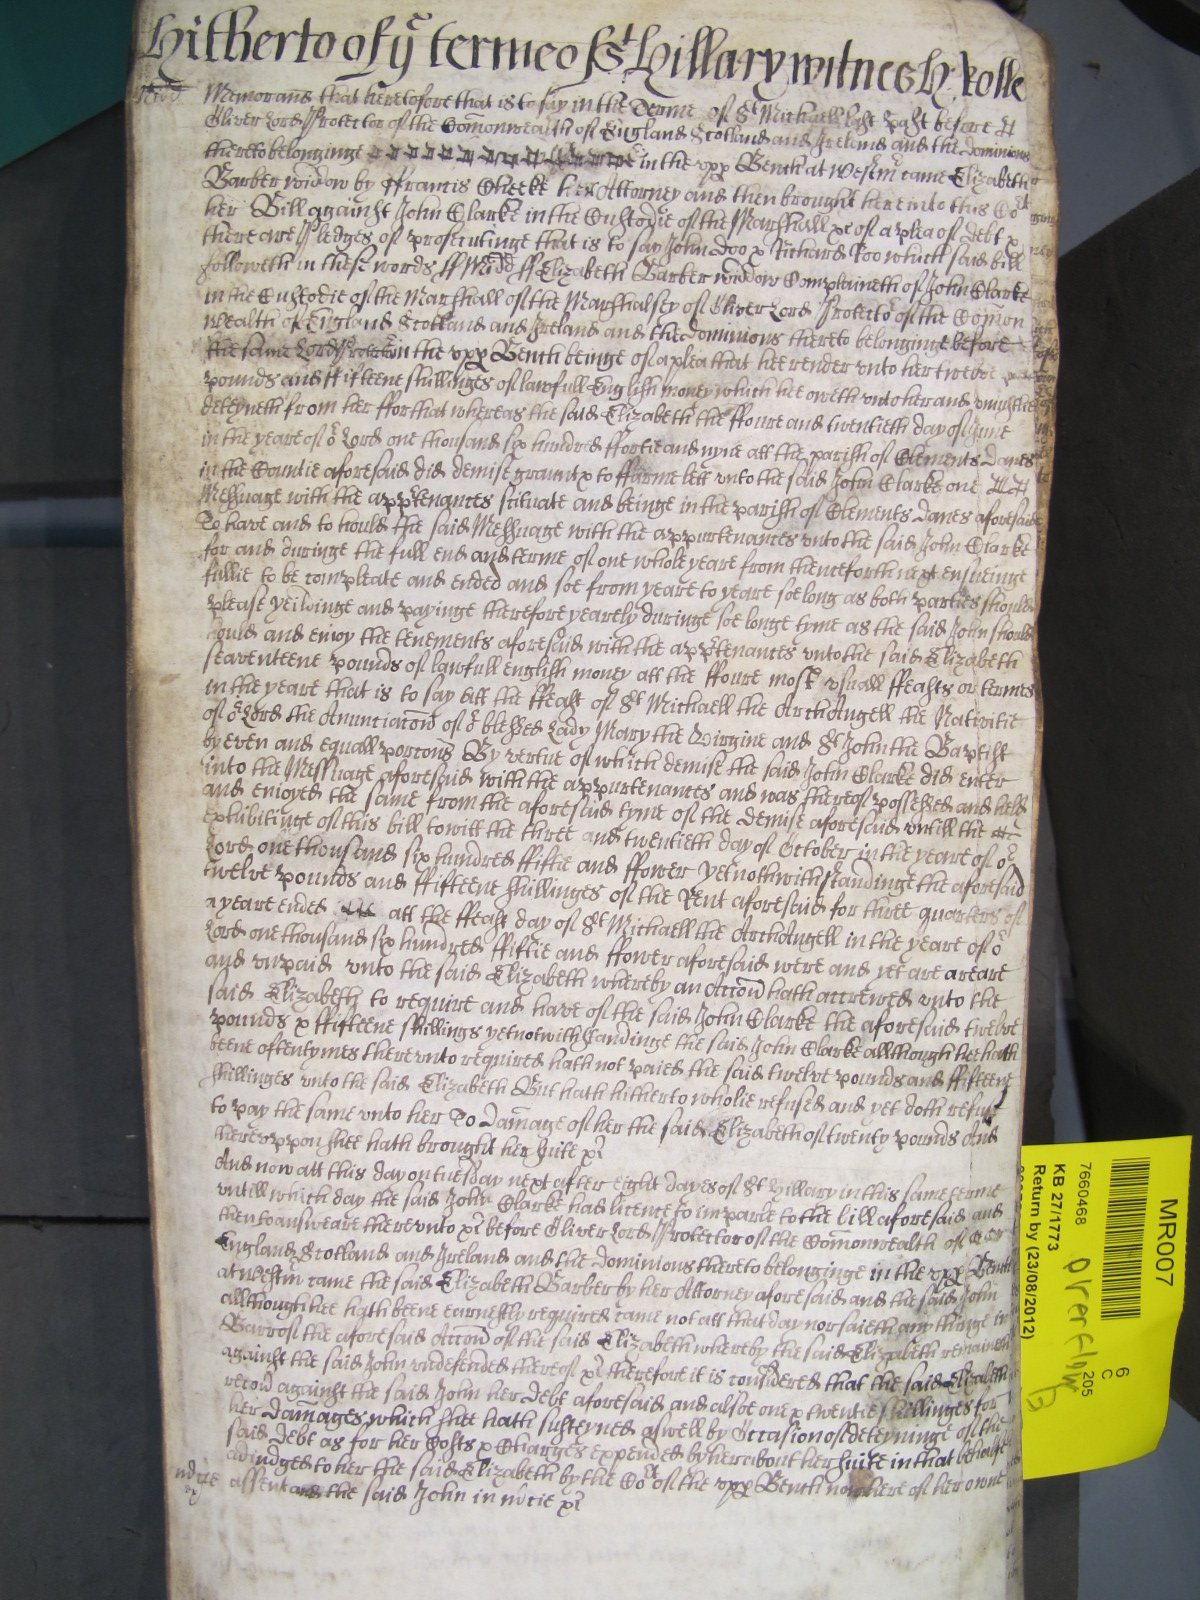 Hitherto of yͤ terme of Sᵗ Hillary witnes H: Rolle
Midd
Memorand that heretofore that is to say in the Terme of Sᵗ Michaell last past before
Oliver Lord Protector of the Comonwealth of England Scotland and Ireland and the dominions
thereto belonginge in the upp Bench at Westm came Elizabeth
Barber widow by ffrancis Cheeke her Attorney and then brought here into this Coᵗ
her Bill against John Clarke in the Custodie of the Marshall xc of a plea of debt x
there are Pledges of prosecutinge that is to say John Doo x Richard Roo which said bill
followeth in these words ff Midd ff Elizabeth Barber widdow Complaineth of John Clarke
in the Custodie of the Marshall of the Marshalsey of Oliver Lord Protector of the Comon
wealth of England Scotland and Ireland and the dominions thereto belonginge before
the same Lord Protector in the upp Bench beinge of a plea that hee render unto her twelve
pounds and ffifteene shillinges of lawfull English money which hee oweth unto her and uniustlie
deteyneth from her ffor that whereas the said Elizabeth the ffoure and twentieth day of June
in the yeare of oʳ Lord one thousand six hundred ffortie and nyne att the parish of Clements Danes
in the Countie aforesaid did demise graunt x to ffarme lett unto the said John Clarke one
Messuage with the apptenances scituate and beinge in the parish of Clements Danes aforesaid
To have and to hould the said Messuage with the appurtenances unto the said John Clarke
for and duringe the full end and terme of one whole yeare from thenceforth next ensueinge
fullie to be compleate and ended and soe from yeare to yeare soe long as both parties should
please yeildinge and payinge therefore yearely duringe soe longe tyme as the said John should
hould and enioy the tenements aforesaid with the apptenances unto the said Elizabeth
seaventeene pounds of lawfull english money att the ffoure most usuall ffeasts or termes
in the yeare that is to say att the ffeast of Sᵗ Michaell the ArchAngell the Nativitie
of oʳ Lord the Anunciacon of oʳ blessed Lady Mary the Virgine and Sᵗ John the Baptist
by even and equall porcons By vertue of which demise the said John Clarke did enter
into the Messuage aforesaid with the appurtenances and was thereof possessed and held
and enioyed the same from the aforesaid tyme of the demise aforesaid untill the
exhibitinge of this bill to witt the three and twentieth day of October in the yeare of oʳ
Lord one thousand six hundred ffiftie and ffower yet nothwithstandinge the aforesaid
twelve pounds and ffifteene shillinges of the Rent aforesaid for three quarters of
a yeare ended att the ffeast day of Sᵗ Michaell the ArchAngell in the yeare of oʳ
Lord one thousand six hundred ffiftie and ffower aforesaid were and yet are areare
and unpaid unto the said Elizabeth whereby an Accon hath accrewed unto the
said Elizabeth to require and have of the said John Clarke the aforesaid twelve
pounds x ffifteene shillings yet notwithstandinge the said John Clarke allthough hee hath
beene oftentymes thereunto required hath not paied the said twelve pounds and ffifteene
shillinges unto the said Elizabeth But hath hitherto wholie refused and yet doth refuse
to pay the same unto her To Damage of her the said Elizabeth of twenty pounds And
thereuppon shee hath brought her suite xc
And now att this day on tuesday next after eight dayes of Sᵗ Hillary in this same terme
untill which day the said John Clarke had licence to imparle to the bill aforesaid and
then to answeare thereunto xc before Oliver Lord Protector of the Comonwealth of
England Scotland and Ireland and the dominions thereto belonginge in the upp Bench
at Westm came the said Elizabeth Barber by her Attorney aforesaid and the said John
allthough hee hath beene earnestly required came not att that day nor saieth any thinge in
Barr of the aforesaid Accon of the said Elizabeth whereby the said Elizabeth remaineth
against the said John undefended thereof xc therefore it is considered that the said Elizabeth
recov against the said John her debt aforesaid and alsoe one x twentie shillinges for
her damages which shee hath susteyned aswell by Occasion of deteyninge of the
said debt as for her Costs x Charges expended by her about her suite in that behalfe
adiudged to her the said Elizabeth by the Coᵗ of the upp Bench now here of her owne
assent and the said John in mcie xc
MR007
7660468
KB 27/1773
Return by (23/08/2012)
Overflow
6
C
205
B